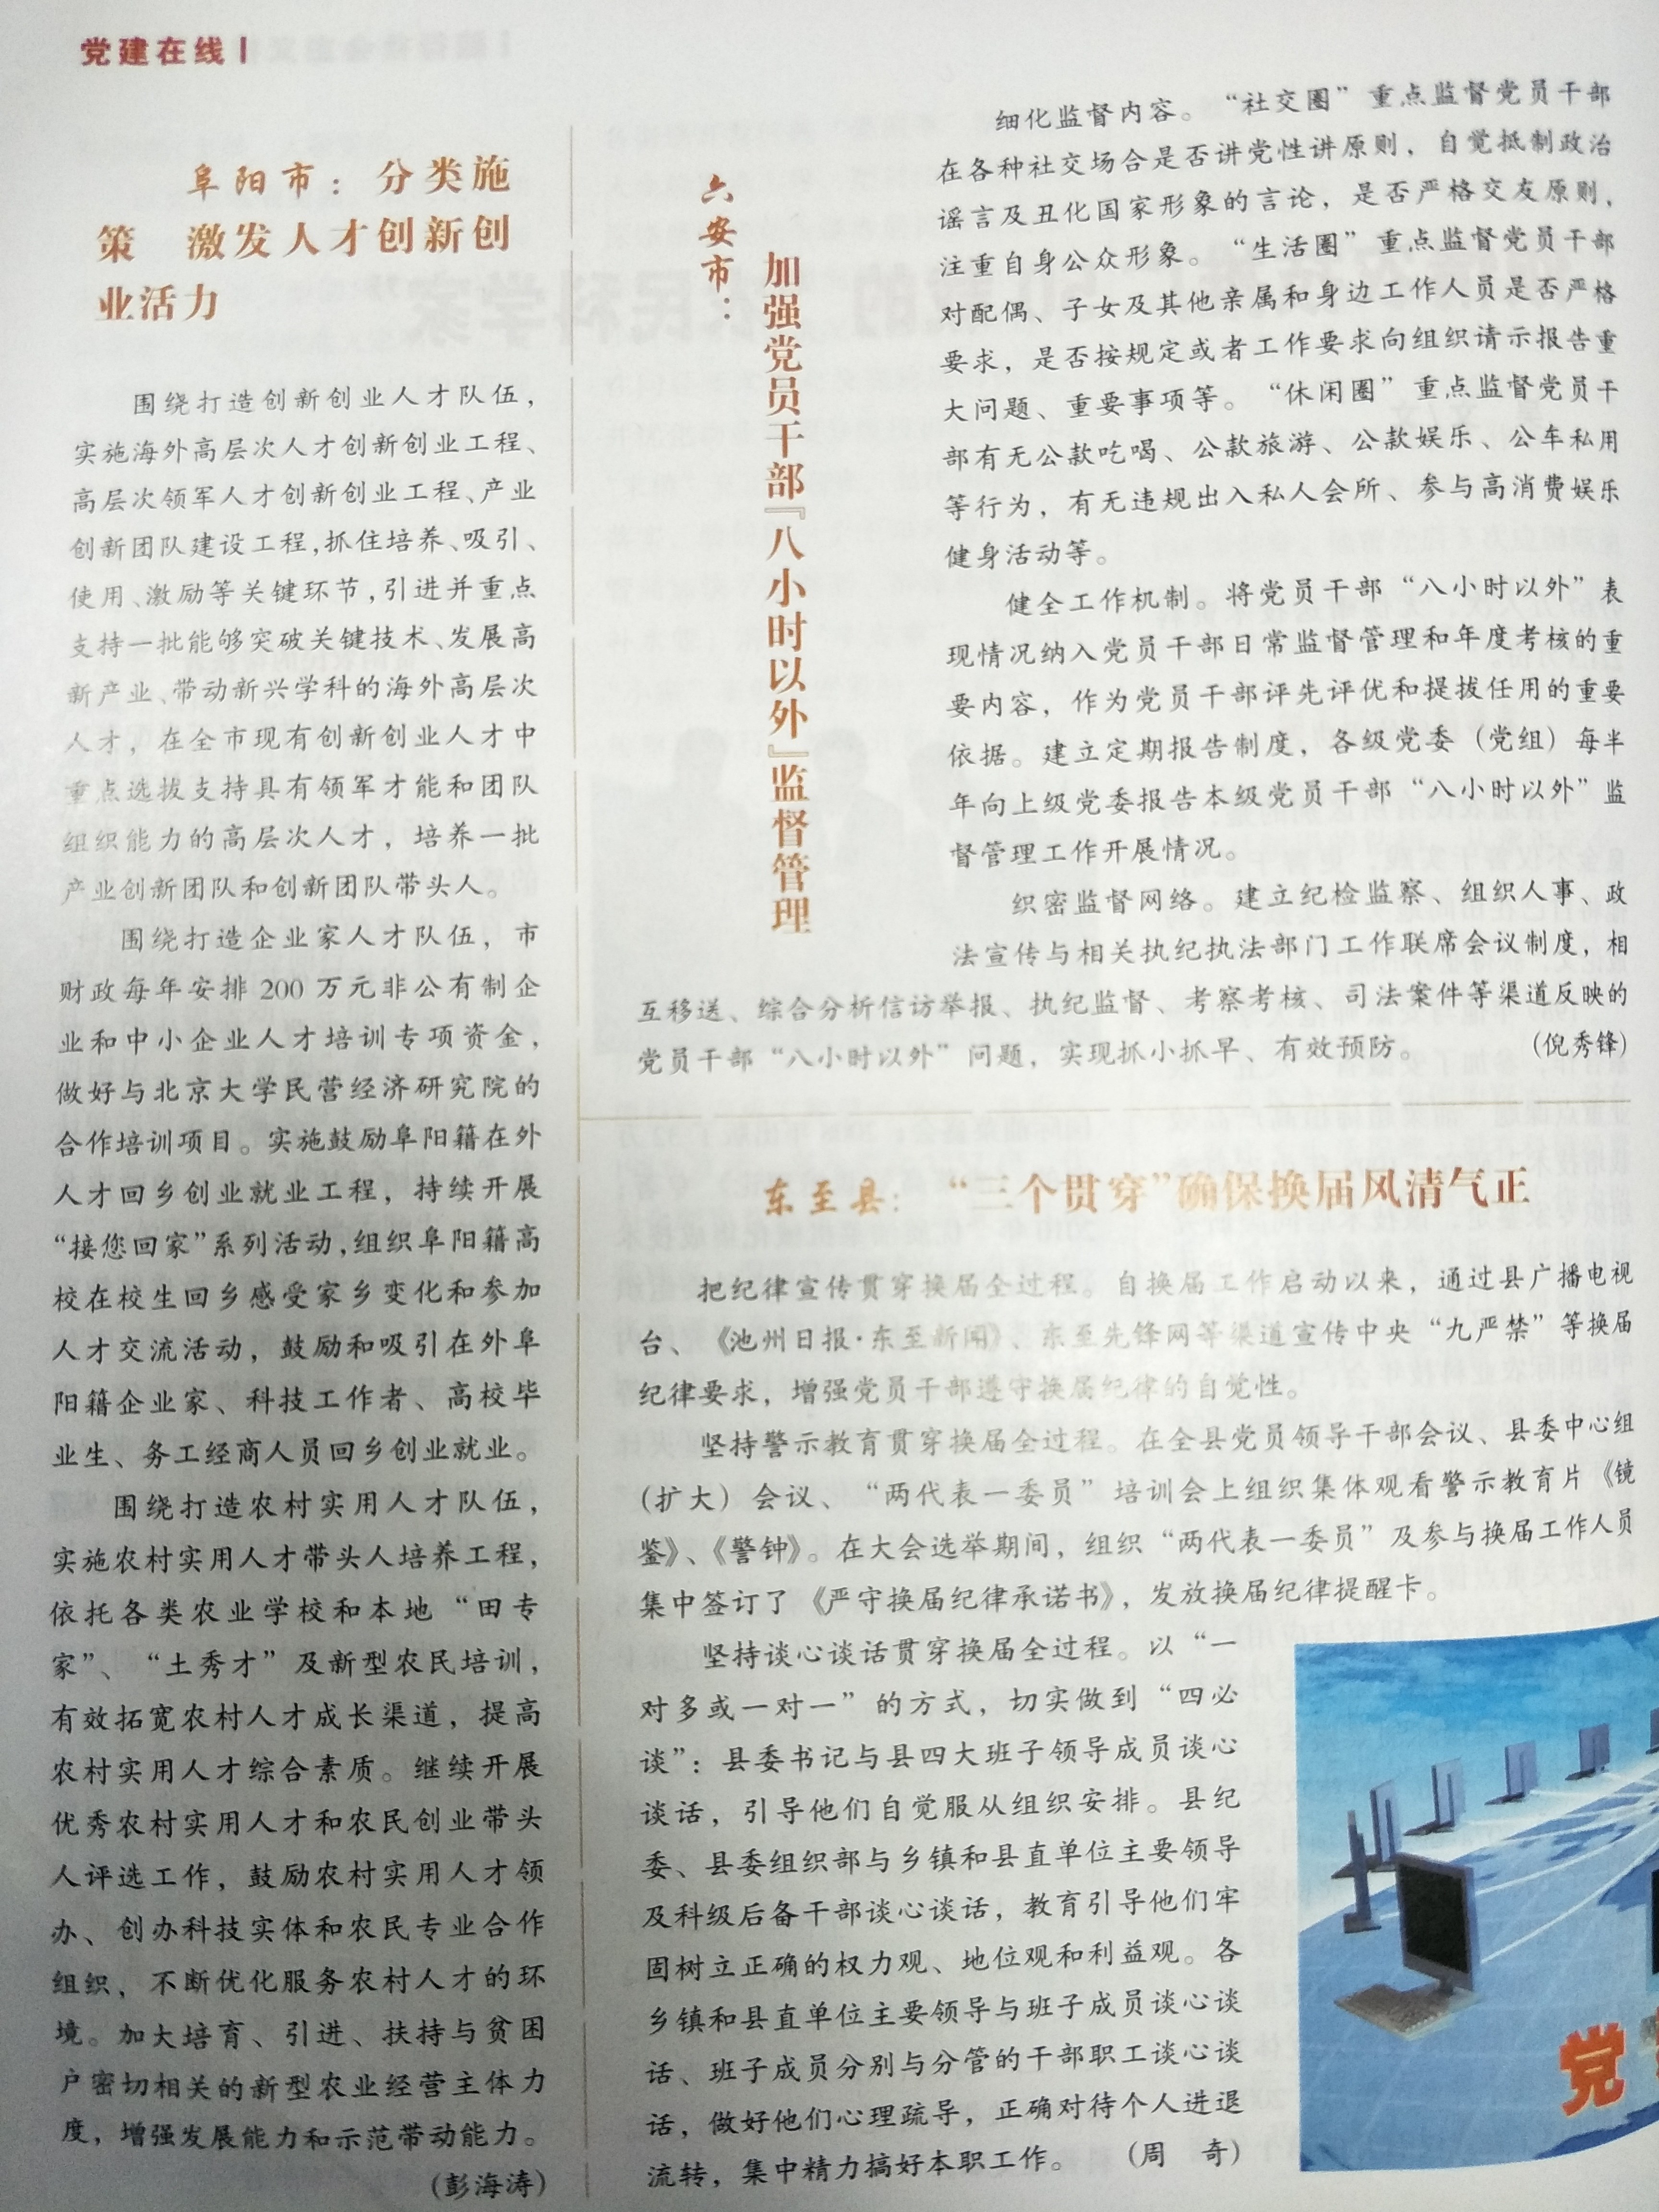 党建在线
阜阳市：分类施
策　激发人才创新创
业活力
围绕打造创新创业人才队伍，
实施海外高层次人才创新创业工程、
高层次领军人才创新创业工程、产业
创新团队建设工程，抓住培养、吸引、
使用、激励等关键环节，引进并重点
支持一批能够突破关键技术、发展高
新产业、带动新兴学科的海外高层次
人才，在全市现有创新创业人才中
重点选拔支持具有领军才能和团队
组织能力的高层次人才，培养一批
产业创新团队和创新团队带头人。
围绕打造企业家人才队伍，市
财政每年安排 200 万元非公有制企
业和中小企业人才培训专项资金，
做好与北京大学民营经济研究院的
合作培训项目。实施鼓励阜阳籍在外
人才回乡创业就业工程，持续开展
“接您回家”系列活动，组织阜阳籍高
校在校生回乡感受家乡变化和参加
人才交流活动，鼓励和吸引在外阜
阳籍企业家、科技工作者、高校毕
业生、务工经商人员回乡创业就业。
围绕打造农村实用人才队伍，
实施农村实用人才带头人培养工程，
依托各类农业学校和本地“田专
家”、“土秀才”及新型农民培训，
有效拓宽农村人才成长渠道，提高
农村实用人才综合素质。继续开展
优秀农村实用人才和农民创业带头
人评选工作，鼓励农村实用人才领
办、创办科技实体和农民专业合作
组织，不断优化服务农村人才的环
境。加大培育、引进、扶持与贫困
户密切相关的新型农业经营主体力
度，增强发展能力和示范带动能力。
（彭海涛）
六安市：
加强党员干部『八小时以外』监督管理
细化监督内容。“社交圈”重点监督党员干部
在各种社交场合是否讲党性讲原则，自觉抵制政治
谣言及丑化国家形象的言论，是否严格交友原则，
注重自身公众形象。“生活圈”重点监督党员干部
对配偶、子女及其他亲属和身边工作人员是否严格
要求，是否按规定或者工作要求向组织请示报告重
大问题、重要事项等。“休闲圈”重点监督党员干
部有无公款吃喝、公款旅游、公款娱乐、公车私用
等行为，有无违规出入私人会所、参与高消费娱乐
健身活动等。
健全工作机制。将党员干部“八小时以外”表
现情况纳入党员干部日常监督管理和年度考核的重
要内容，作为党员干部评先评优和提拔任用的重要
依据。建立定期报告制度，各级党委（党组）每半
年向上级党委报告本级党员干部“八小时以外”监
督管理工作开展情况。
织密监督网络。建立纪检监察、组织人事、政
法宣传与相关执纪执法部门工作联席会议制度，相
互移送、综合分析信访举报、执纪监督、考察考核、司法案件等渠道反映的
党员干部“八小时以外”问题，实现抓小抓早、有效预防。　（倪秀锋）
东至县：“三个贯穿”确保换届风清气正
把纪律宣传贯穿换届全过程。自换届工作启动以来，通过县广播电视
台、《池州日报·东至新闻》、东至先锋网等渠道宣传中央“九严禁”等换届
纪律要求，增强党员干部遵守换届纪律的自觉性。
坚持警示教育贯穿换届全过程。在全县党员领导干部会议、县委中心组
（扩大）会议、“两代表一委员”培训会上组织集体观看警示教育片《镜
鉴》、《警钟》。在大会选举期间，组织“两代表一委员”及参与换届工作人员
集中签订了《严守换届纪律承诺书》，发放换届纪律提醒卡。
坚持谈心谈话贯穿换届全过程。以“一
对多或一对一”的方式，切实做到“四必
谈”：县委书记与县四大班子领导成员谈心
谈话，引导他们自觉服从组织安排。县纪
委、县委组织部与乡镇和县直单位主要领导
及科级后备干部谈心谈话，教育引导他们牢
固树立正确的权力观、地位观和利益观。各
乡镇和县直单位主要领导与班子成员谈心谈
话、班子成员分别与分管的干部职工谈心谈
话，做好他们心理疏导，正确对待个人进退
流转，集中精力搞好本职工作。　（周　奇）
党